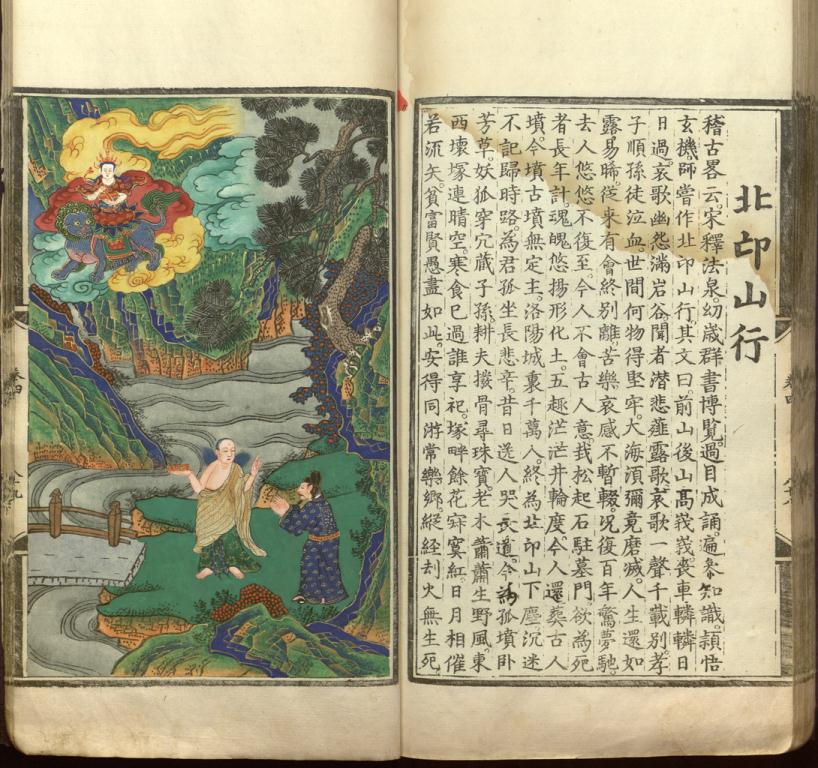 北邙山行
稽古畧云。宋釋法泉。幼歲群書博覽。過目成誦。遍參知識。頴悟
玄機。師嘗作北邙山行。其文曰。前山後山高峩峩。喪車轔轔日
日過。哀歌幽怨滿岩谷。聞者潛悲薤露歌。哀歌一聲千載別。孝
子順孫徒泣血。世間何物得堅牢。大海須彌竟磨滅。人生還如
露易晞。從来有會終別離。苦樂哀感不暫輟。況復百年驚夢馳。
去人悠悠不復至。今人不會古人意。栽松起石駐墓門。欲為死
者長年計。魂魄悠揚形化土。五趣茫茫井輪度。今人還葬古人
墳。今墳古墳無定主。洛陽城裏千萬人。終為北邙山下塵。沉迷
不記歸時路。為君孤坐長悲辛。昔日送人哭長道。今為孤墳卧
芳草。妖狐穿穴蔵子孫。耕夫撥骨尋珠寶。老木蕭蕭生野風。東
西壊塚連晴空。寒食已過誰享祀。塚畔餘花寂寞紅。日月相催
若流矢。貧富賢愚盡如此。安得同游常樂鄉。縱經刦火無生死。